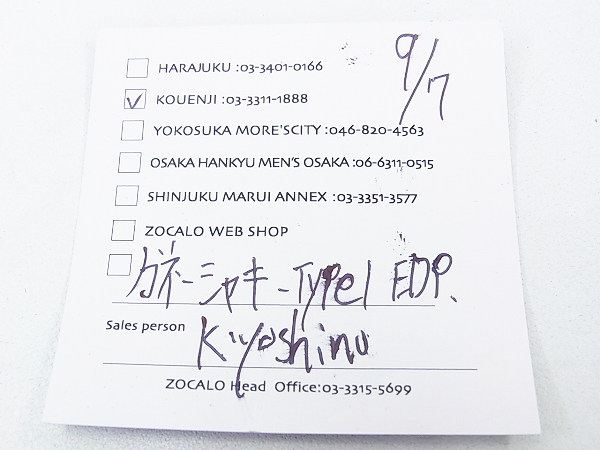 9/7
HARAJUKU :03-3401-0166
KOUENJI :03-3311-1888
YOKOSUKA MORE'SCITY :046-820-4563
OSAKA HANKYU MEN'S OSAKA :06-6311-0515
SHINJUKU MARUI ANNEX :03-3351-3577
ZOCALO WEB SHOP
ガネーシャキー-TYPe1 EDP.
Sales person Kiyoshinu
ZOCALO Head Office:03-3315-5699